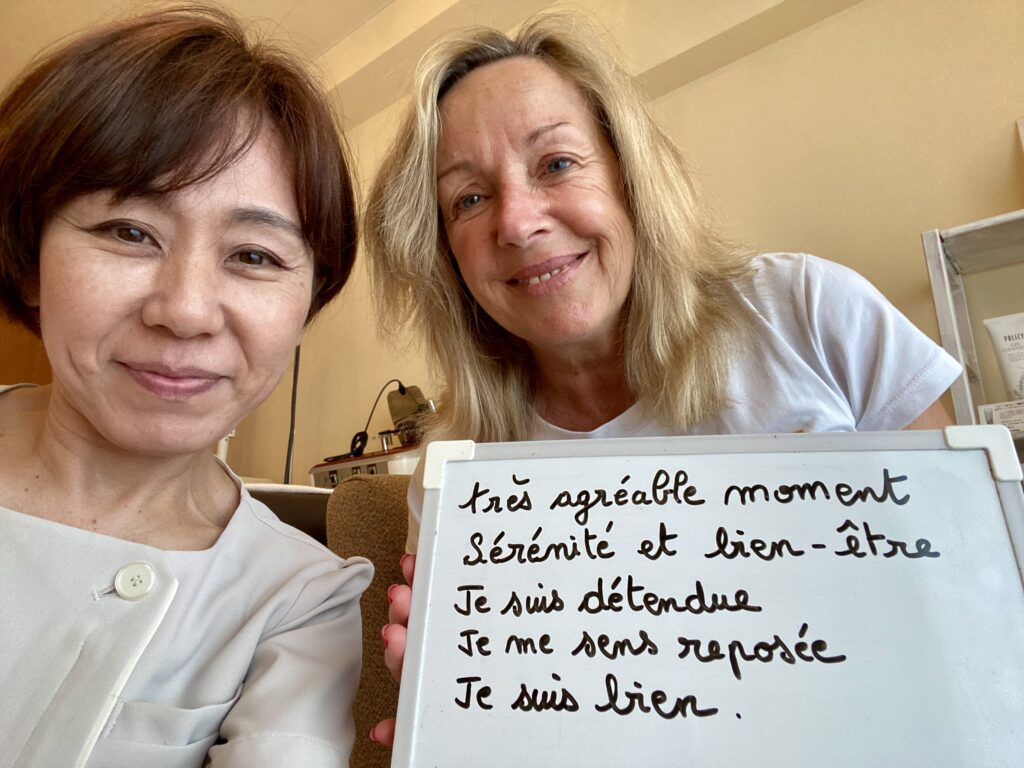 très agréable moment
Sérénité et bien-être
Je suis détendue
Je me sens reposée
Je suis bien.
POLICY